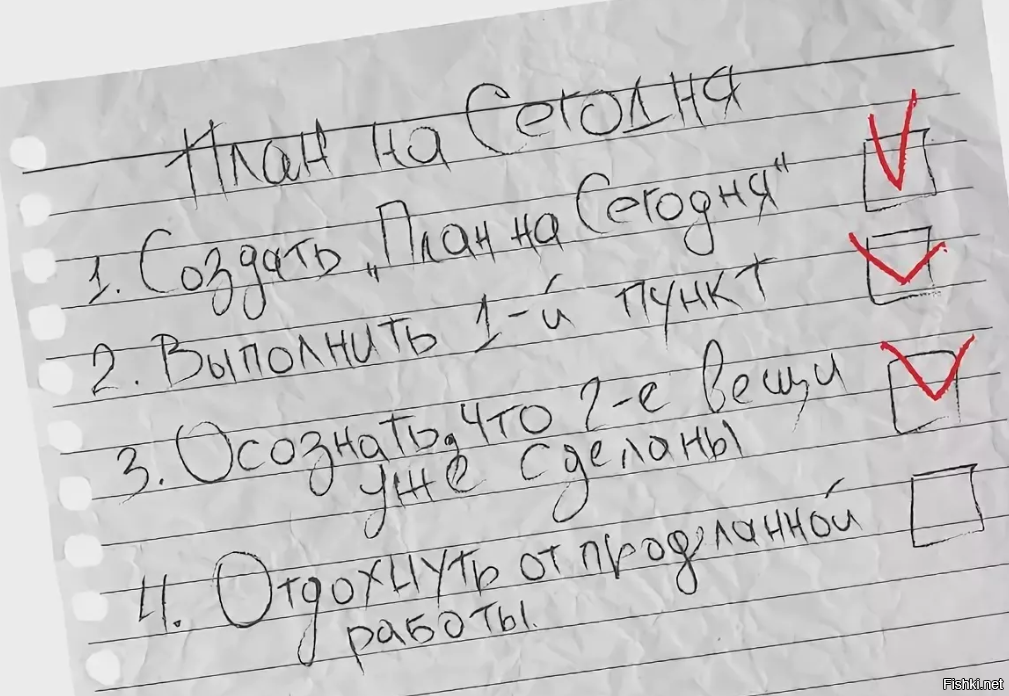 План на Сегодня
1. Создать „План на Сегодня"
2. Выполнить 1-й пункт
3. Осознать, что 2-е вещи
уже сделаны
4. Отдохнуть от проделанной
работы.
Fishki.net